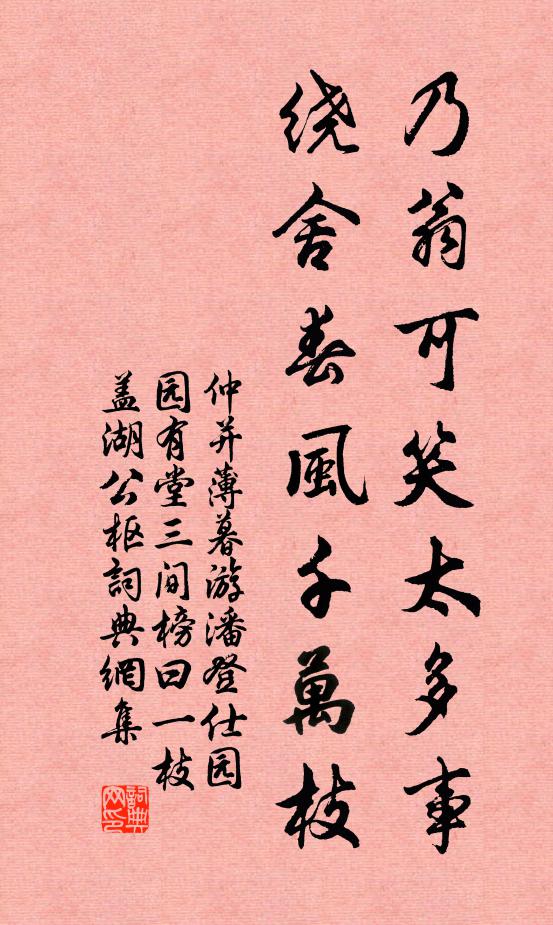 乃翁可笑太多事
绕舍春風千萬枝
仲并薄暮游潘登仕园
园有堂三间榜曰一枝
盖湖公枢詞典網集
詞典网印